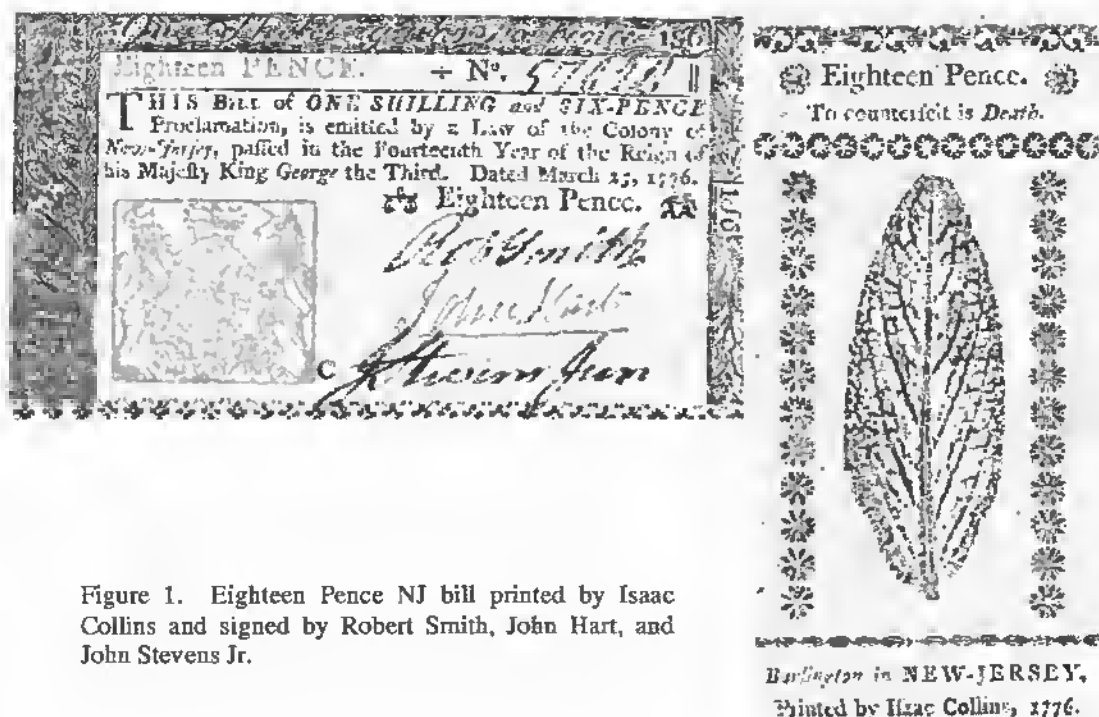 Eighteen PENCE. ÷ No.
THIS BILL of ONE SHILLING and SIX-PENCE
Proclamation, is emitted by a Law of the Colony of
New-Jersey, passed in the Fourteenth Year of the Reign of
his Majesty King George the Third. Dated March 25, 1776.
Eighteen Pence.
Rob Smith
John Hart
C
Eighteen Pence.
To counterfeit is Death.
Burlington in NEW-JERSEY,
Printed by Isaac Collins, 1776.
Figure 1. Eighteen Pence NJ bill printed by Isaac
Collins and signed by Robert Smith, John Hart, and
John Stevens Jr.